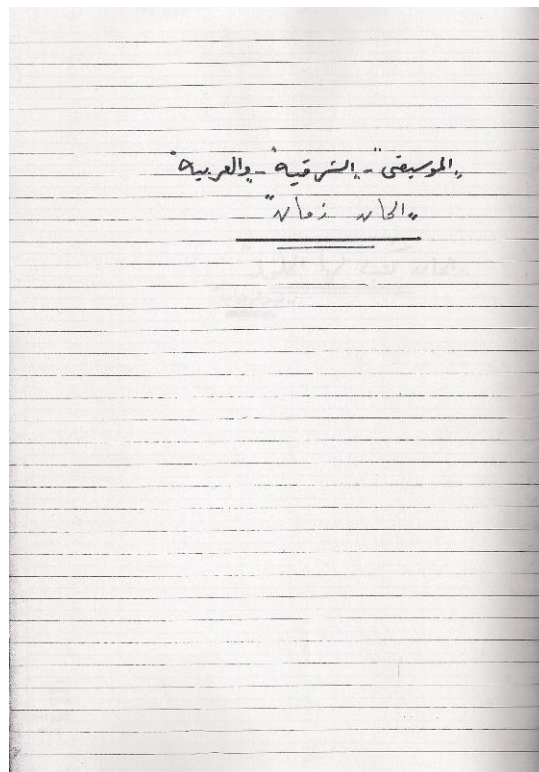 "الموسيقى" - "الشرقية" - "والعربية"
"الحان زمان"